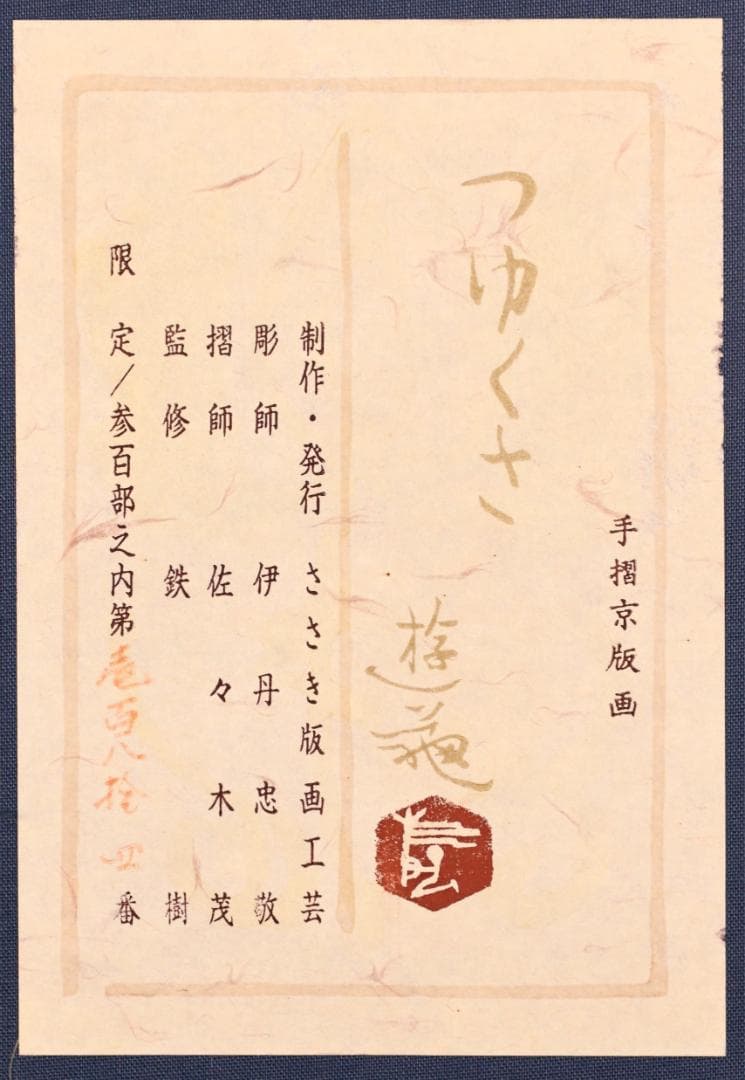 手摺京版画
つゆくさ
制作・発行 ささき版画工芸
彫師 伊丹忠敬
摺師 佐々木茂
監修 鉄樹
限定/参百部之内第壱百八拾四番